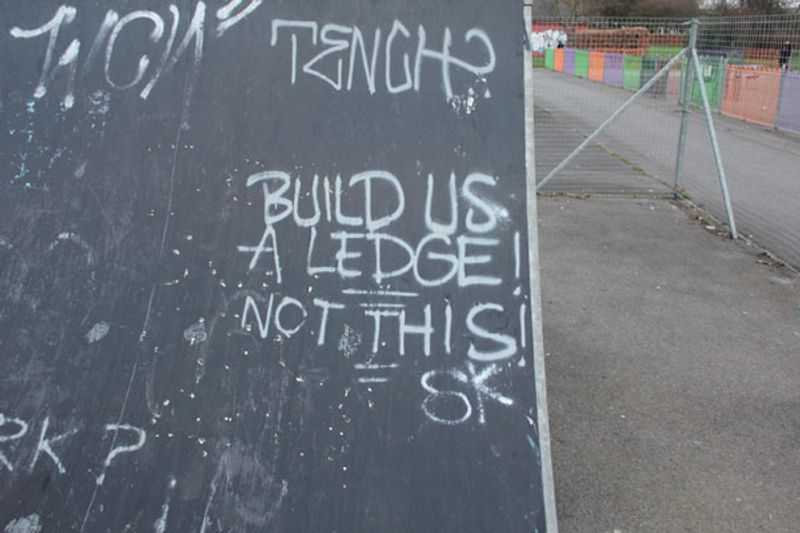 TENCH
BUILD US
A LEDGE!
NOT THIS!
SK
RK?